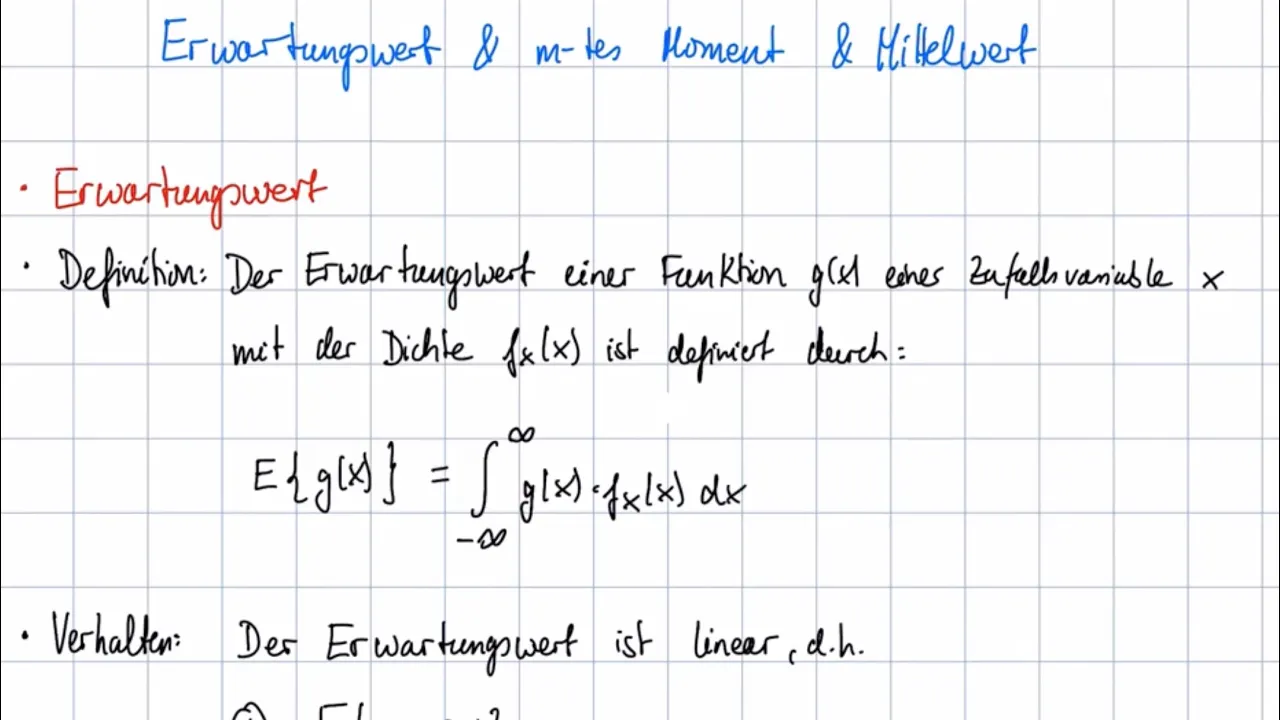 Erwartungswert & m-tes Moment & Mittelwert
• Erwartungswert
• Definition: Der Erwartungswert einer Funktion g(x) eines Zufallsvariable x
mit der Dichte fₓ(x) ist definiert durch:
E{g(x)} = ∫_{-∞}^{∞} g(x)·fₓ(x) dx
• Verhalten: Der Erwartungswert ist linear, d.h.